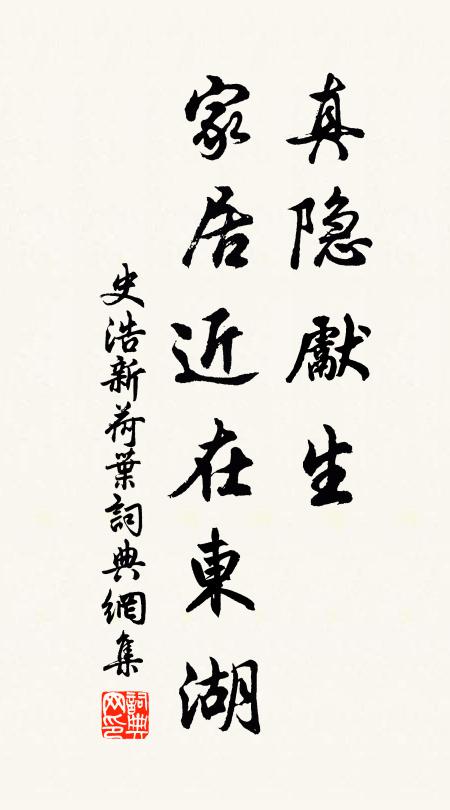 真隐獻生
家居近在東湖
史浩新荷葉詞典網集
詞典网印